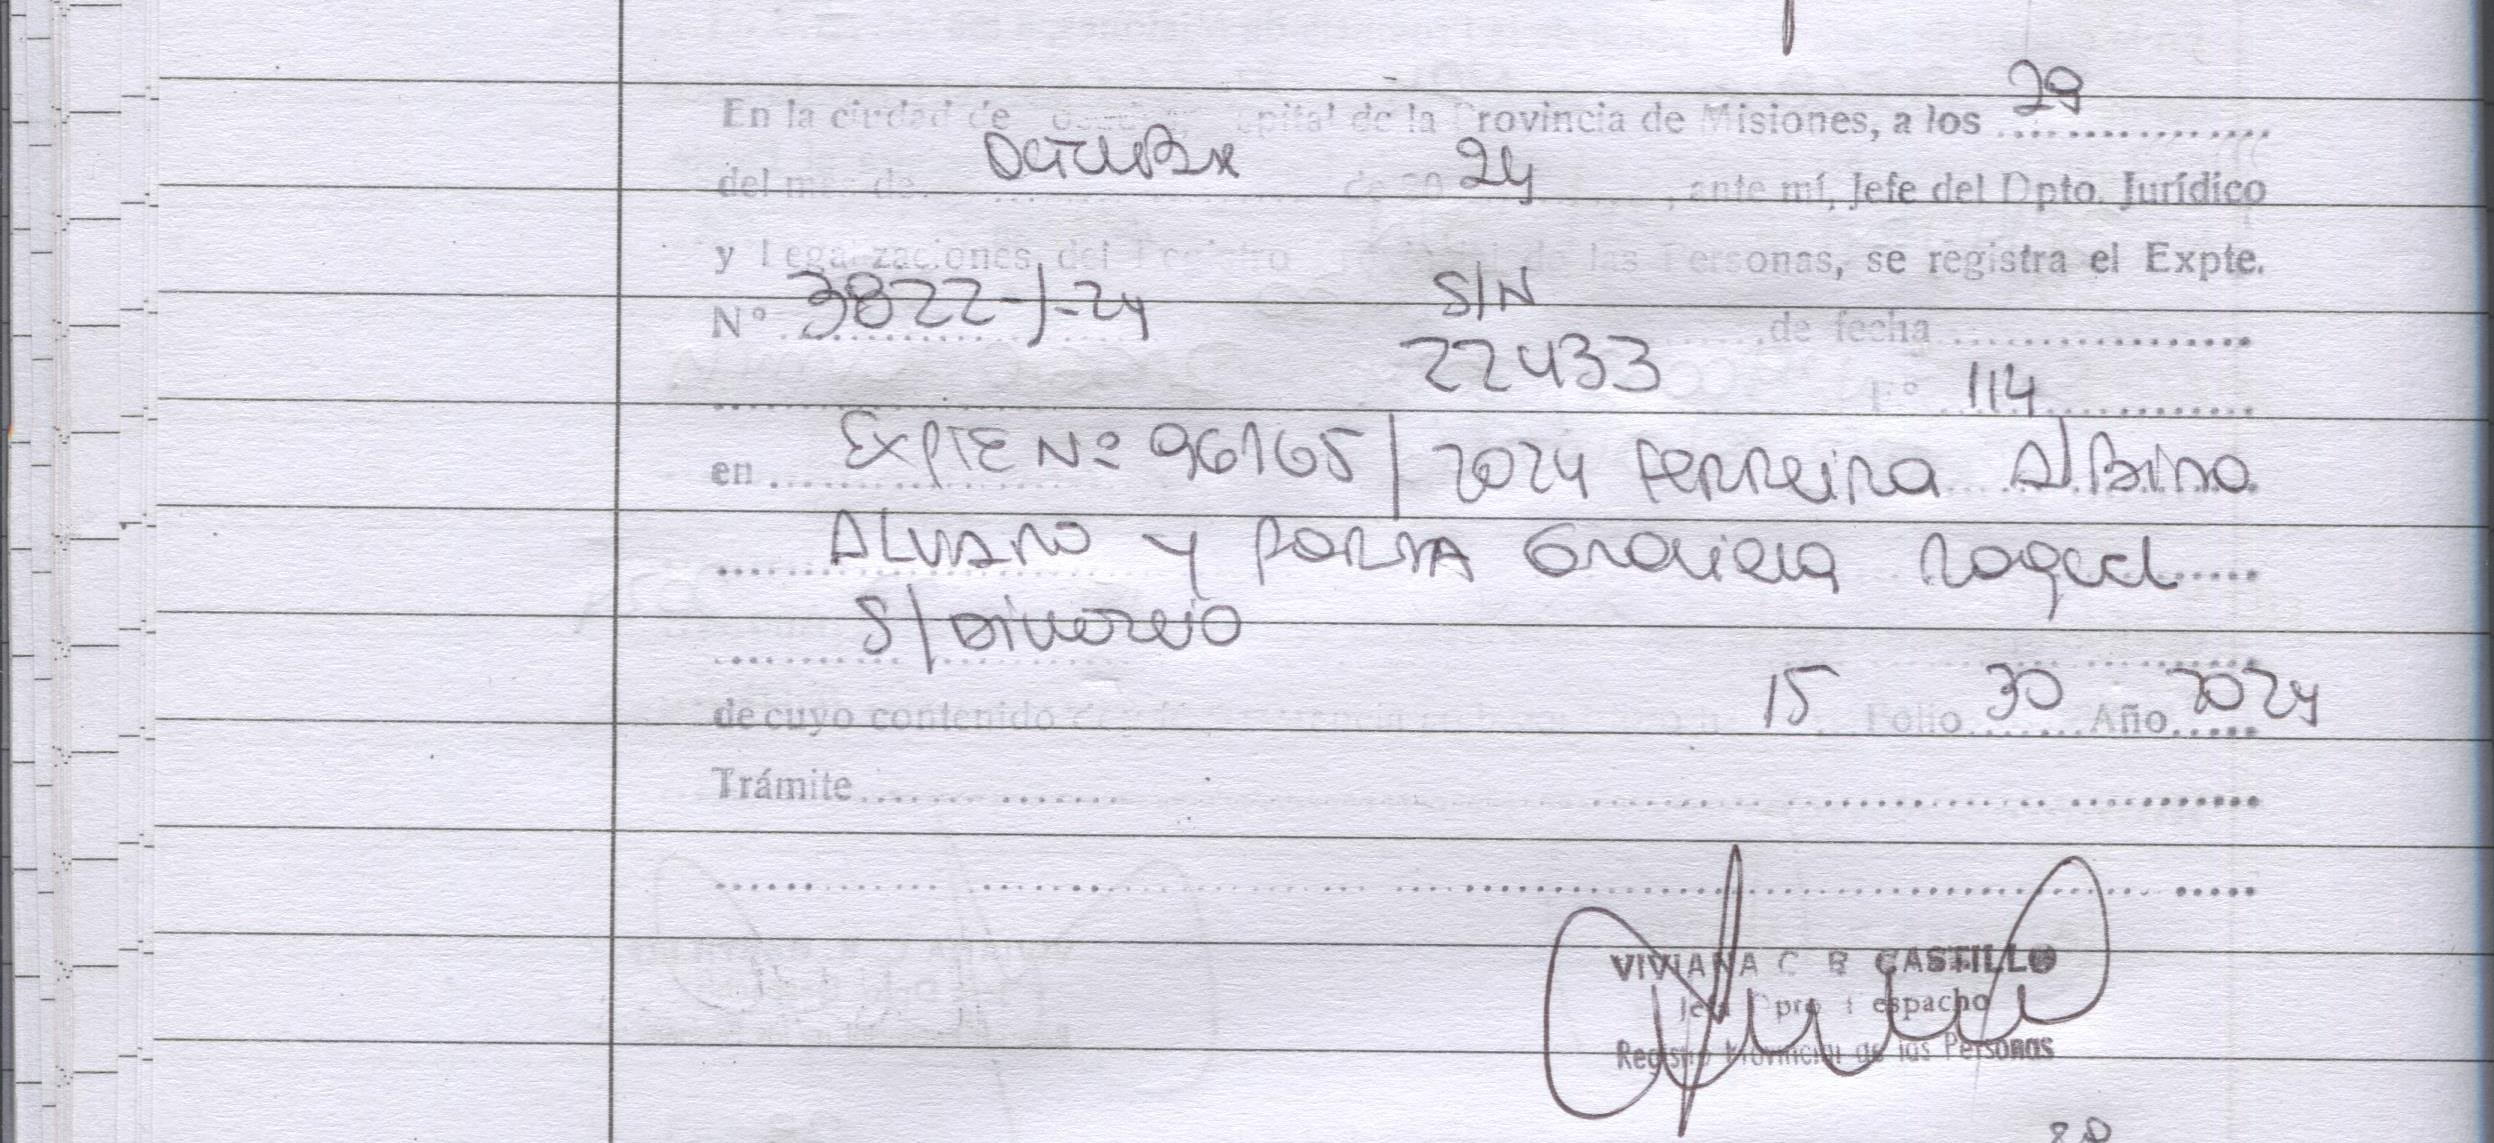 29
En la ciudad de Capital de la Provincia de Misiones, a los
Octubre 24
del mes de de 20 , ante mí, Jefe del Dpto. Jurídico
y Legalizaciones del Registro de las Personas, se registra el Expte.
S/N
N° 3822-J-24 de fecha
22433 F° 114
en EXPTE Nº 96165/2024 Ferreira Albino
ALVARO y Graciela Raquel
S/Divorcio
15 30 2024
de cuyo contenido Folio Año
Trámite
VIVIANA C B CASTILLO
Jefa Dpto Despacho
Registro Provincial de las Personas